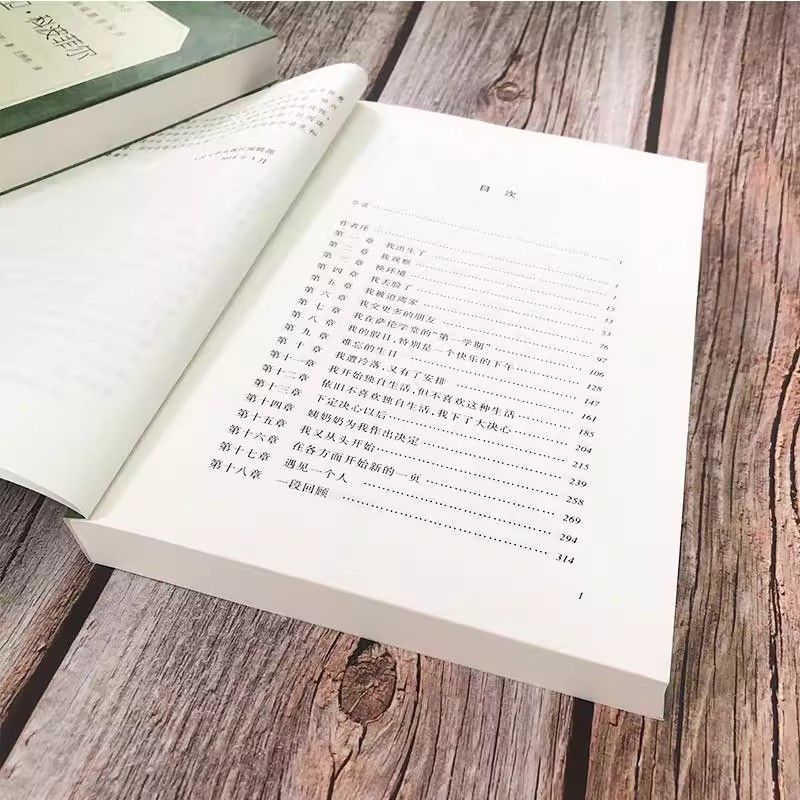 科波菲尔
目次
导读 …… 1
作者序 …… 1
第一章 我出生了 …… 1
第二章 我观察 …… 15
第三章 换环境 …… 33
第四章 我丢脸了 …… 53
第五章 我被迫离家 …… 76
第六章 我交更多的朋友 …… 92
第七章 我在萨伦学堂的“第一学期” …… 106
第八章 我的假日,特别是一个快乐的下午 …… 128
第九章 难忘的生日 …… 147
第十章 我遭冷落,又有了安排 …… 161
第十一章 我开始独自生活,但不喜欢这种生活 …… 185
第十二章 依旧不喜欢独自生活,我下了大决心 …… 204
第十三章 下定决心以后 …… 215
第十四章 姨奶奶为我作出决定 …… 239
第十五章 我又从头开始 …… 258
第十六章 在各方面开始新的一页 …… 269
第十七章 遇见一个人 …… 294
第十八章 一段回顾 …… 314
1